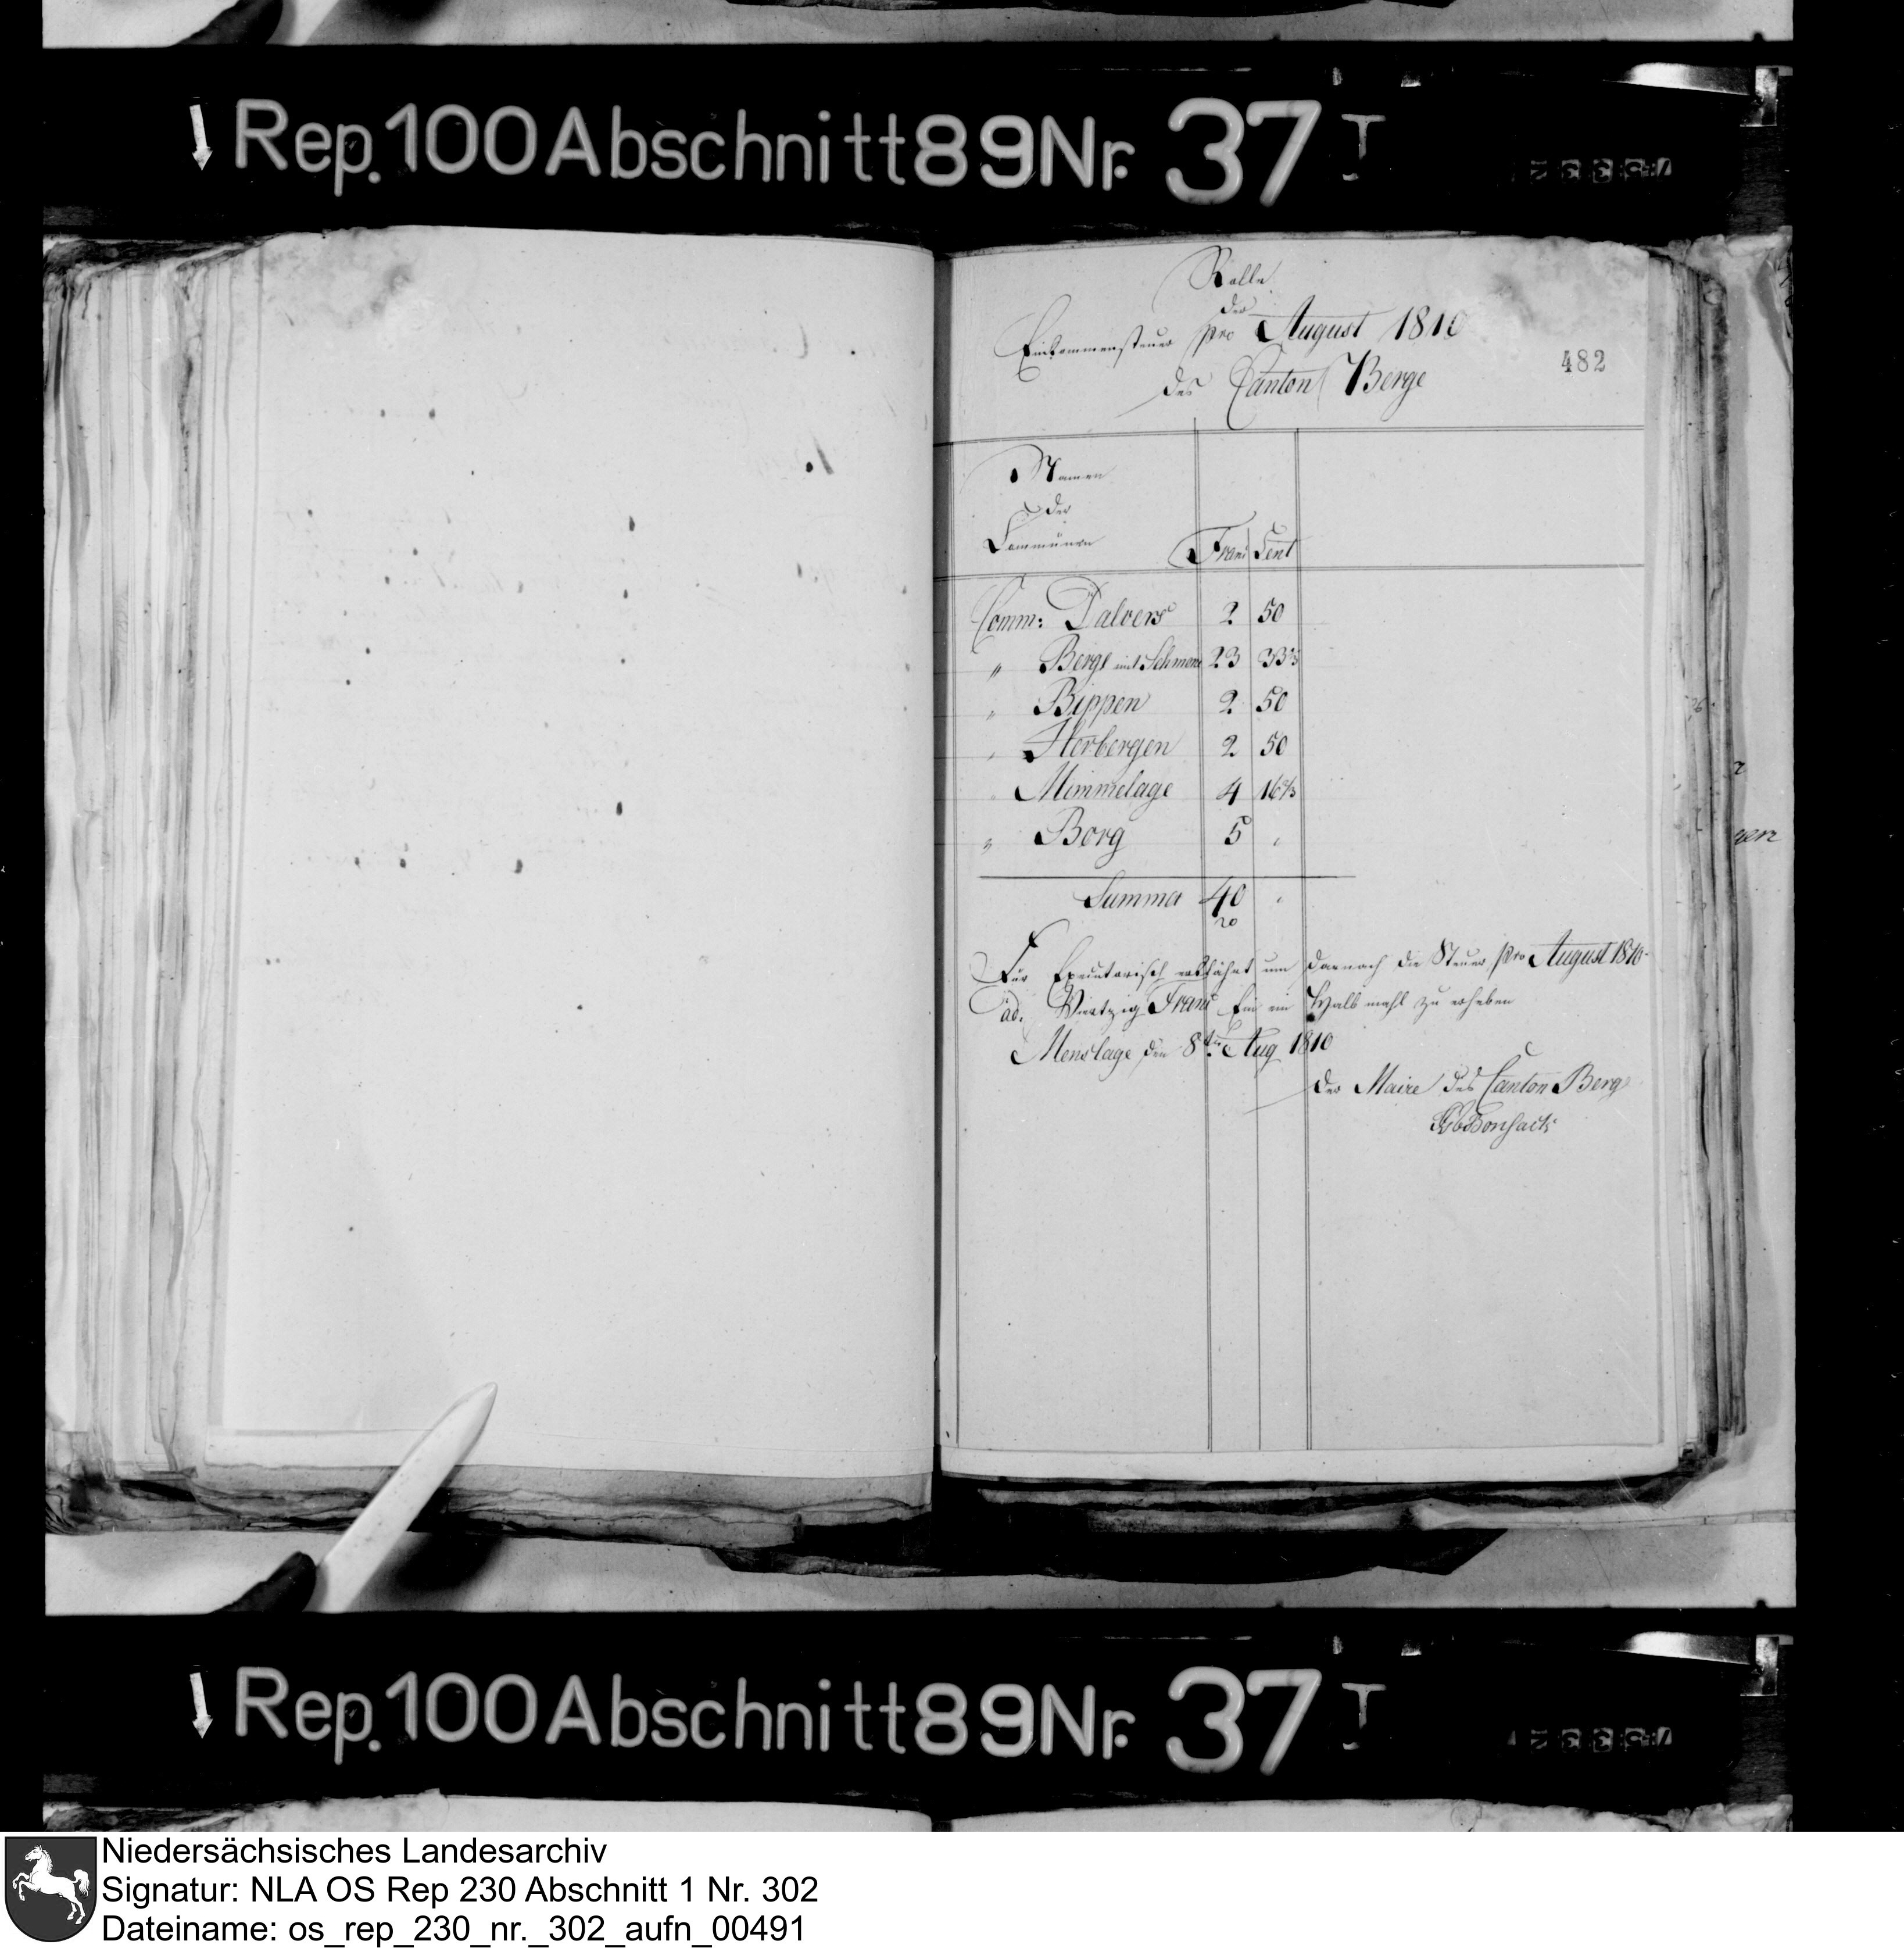 Rep. 100 Abschnitt 89 Nr. 37 I
Rolle
der
Einkommensteuer pro August 1810
des Canton Berge
482
Namen
der
Communen
Franc Cent
Comm: Dalvers 2 50
" Berge mit Schmone 23 33⅓
" Bippen 2 50
" Herbergen 2 50
" Mimmelage 4 16⅔
" Borg 5 "
Summa 40 "
20
Für Executorisch erklährt um darnach die Steuer pro August 1810
ad. Viertzig Franc Ein ein Halb mahl zu erheben
Menslage den 8ten Aug 1810
Der Maire des Canton Berge
Bonsack
Rep. 100 Abschnitt 89 Nr. 37 I
Niedersächsisches Landesarchiv
Signatur: NLA OS Rep 230 Abschnitt 1 Nr. 302
Dateiname: os_rep_230_nr._302_aufn_00491